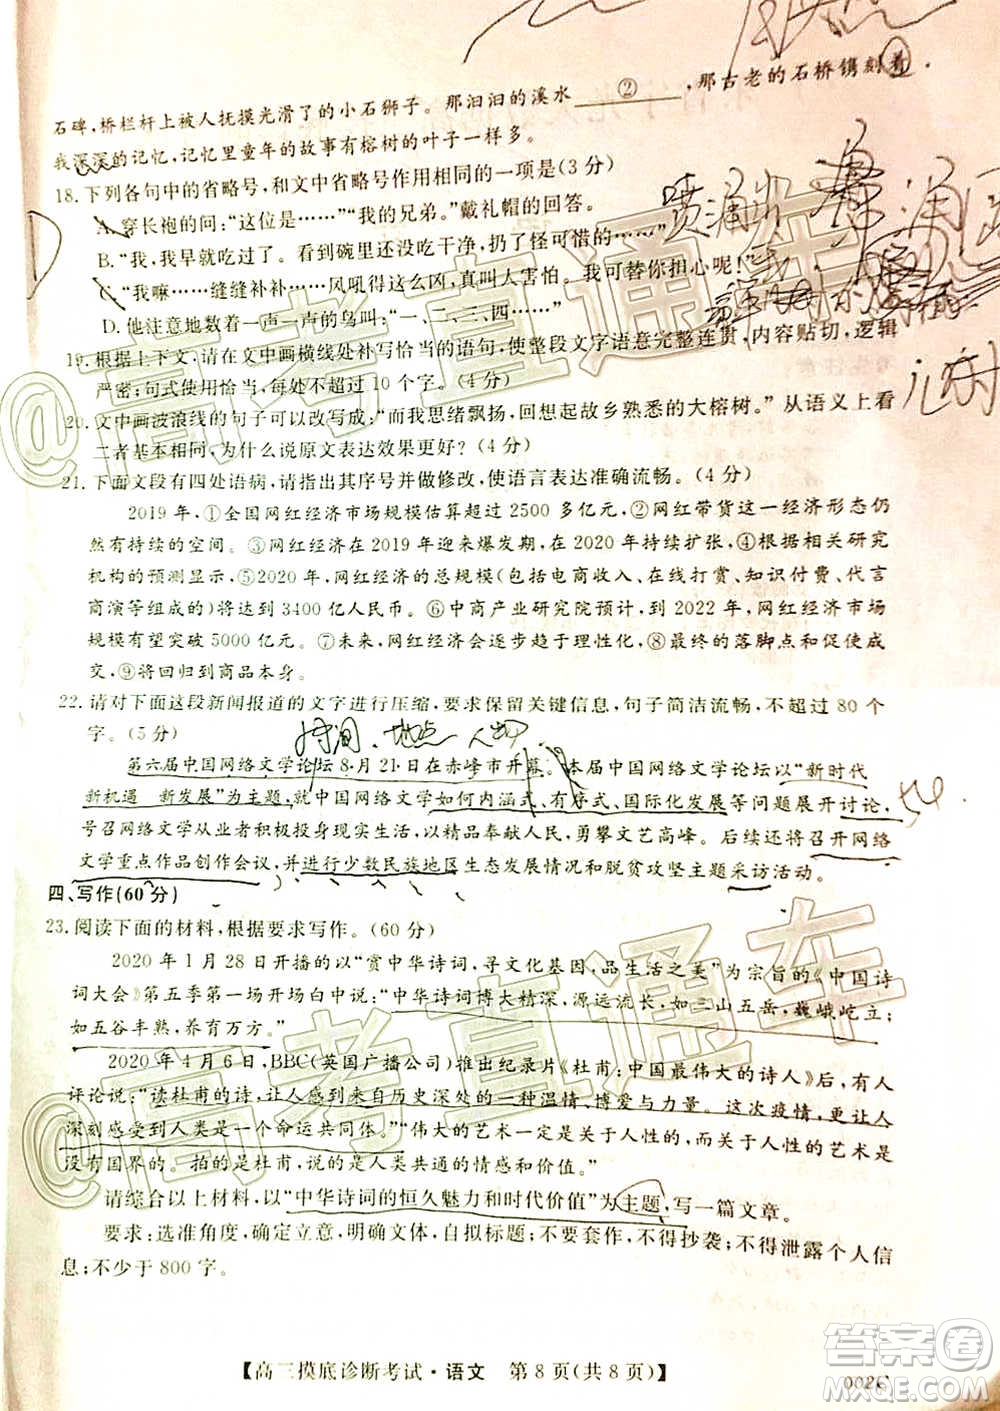 石碑,桥栏杆上被人抚摸光滑了的小石狮子。那汩汩的溪水 ② ,那古老的石桥镌刻着
我深深的记忆,记忆里童年的故事有榕树的叶子一样多。
18.下列各句中的省略号,和文中省略号作用相同的一项是(3分)
A.穿长袍的问:“这位是……”“我的兄弟。”戴礼帽的回答。
B.“我,我没有笑过了。看到碗里还没吃干净,扔了怪可惜的……”
C.“我嘛……缝缝补补……风吼得这么凶,真叫人害怕。我可替你担心呢!”
D.他注意地数着一声一声的鸟叫:“一、二、三、四……”
19.根据上下文,请在文中画横线处补写恰当的语句,使整段文字语意完整连贯,内容贴切,逻辑
严密;句式使用恰当,每处不超过10个字。(4分)
20.文中画波浪线的句子可以改写成:“而我思绪飘扬,回想起故乡熟悉的大榕树。”从语义上看
二者基本相同,为什么说原文表达效果更好?(4分)
21.下面文段有四处语病,请指出其序号并做修改,使语言表达准确流畅。(4分)
2019年,①全国网红经济市场规模估算超过2500多亿元,②网红带货这一经济形态
有持续的空间。③网红经济在2019年迎来爆发期,在2020年持续扩张,④相关研究
机构的预测显示,⑤2020年,网红经济的总规模(包括电商收入、在线打赏、知识付费、代言
商演等组成的)将达到3400亿人民币。⑥中商产业研究院预计,到2022年,网红市场
有望突破5000亿元。⑦未来,网红经济会逐步趋于理性化,⑧最终的落脚点和促使成
交,⑨将回归到商品本身。
22.请对下面这段新闻报道的文字进行压缩,要求保留关键信息,句子简洁流畅,不超过80个
字。(5分)
时间、地点 人物
第六届中国网络文学论坛8月21日在赤峰市开幕。本届中国网络文学论坛以“新时代
新机遇 新发展”为主题,就中国网络文学如何内涵式、有序式、国际化发展等问题展开讨论,
号召网络文学从业者积极投身现实生活,以精品奉献人民,勇攀文艺高峰。后续将召开网络
文学重点作品创作会议,并进行少数民族地区生态发展情况和脱贫攻坚主题采访活动。
四、写作(60分)
23.阅读下面的材料,根据要求写作。(60分)
2020年1月28日开播的以“赏中华诗词,寻文化基因,品生活之美”为宗旨的《中国诗
词大会》第五季第一场开场白中说:“中华诗词博大精深,源远流长,如三山五岳,巍峨屹立;
如五谷丰熟,养育万方。”
2020年4月6日,BBC(英国广播公司)推出纪录片《杜甫:中国最伟大的诗人》后,有人
评论说:“读杜甫的诗,能感到来自历史深处的一种温情、博爱与力量。这次疫情,更让人
深刻感受到人类是一个命运共同体。”“伟大的艺术一定是关于人性的,而关于人性的艺术是
没有国界的。拍的是杜甫,说的是人类共通的情感和价值。”
请综合以上材料,以“中华诗词的恒久魅力和时代价值”为主题,写一篇文章。
要求:选准角度,确定立意,明确文体,自拟标题;不要套作,不得抄袭;不得泄露个人信
息;不少于800字。
【高三摸底诊断考试·语文 第8页(共8页)】
002C
@高考直通车
@高考直通车